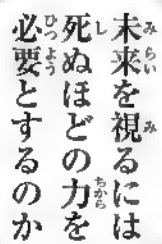 未来を視るには
死ぬほどの力を
必要とするのか